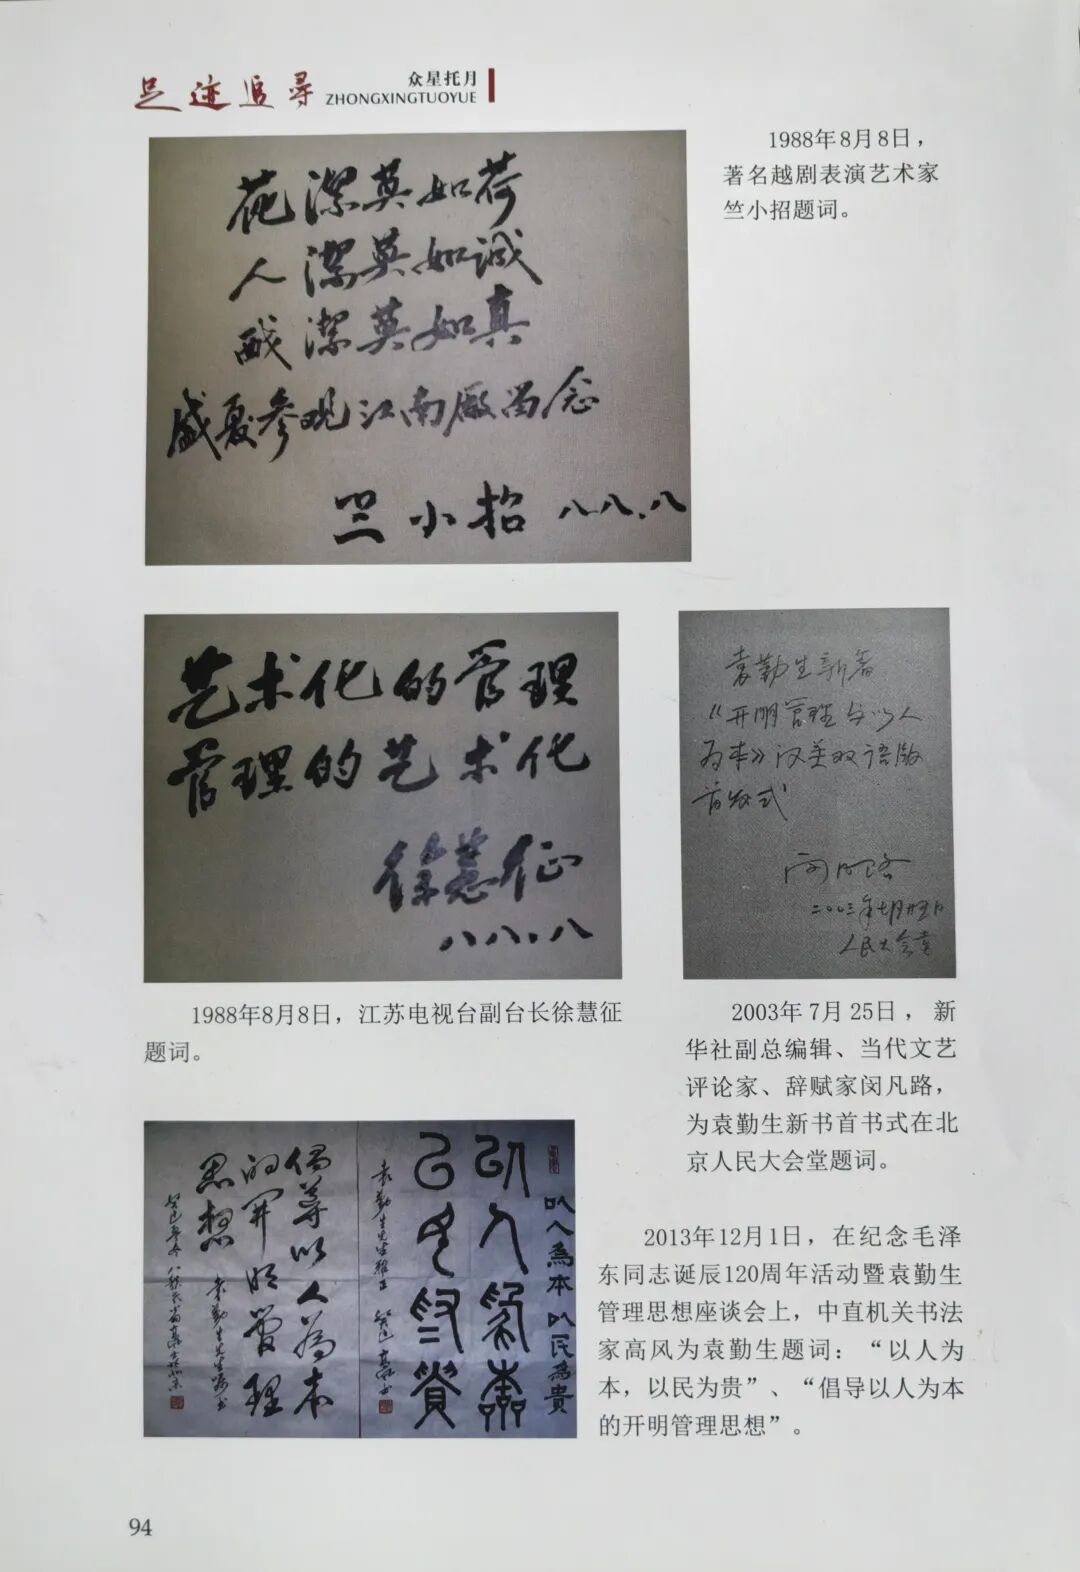 足迹追寻
众星托月
ZHONGXINGTUOYUE
花潔莫如荷
人潔莫如诚
戯潔莫如真
盛夏参观江南廠留念
竺小招 八八.八
1988年8月8日，
著名越剧表演艺术家
竺小招题词。
艺术化的管理
管理的艺术化
徐慧征
八八.八
1988年8月8日，江苏电视台副台长徐慧征
题词。
袁勤生新著
《开明管理与以人
为本》汉英双语版
首发式
闵凡路
二〇〇三年七月廿五日
人民大会堂
2003年7月25日，新
华社副总编辑、当代文艺
评论家、辞赋家闵凡路，
为袁勤生新书首书式在北
京人民大会堂题词。
以人為本 以民為貴
以人為本
以民為貴
袁勤生先生雅正 癸巳高风书
倡导以人為本
的开明管理
思想 袁勤生先生嘱书
2013年12月1日，在纪念毛泽
东同志诞辰120周年活动暨袁勤生
管理思想座谈会上，中直机关书法
家高风为袁勤生题词：“以人为
本，以民为贵”、“倡导以人为本
的开明管理思想”。
94